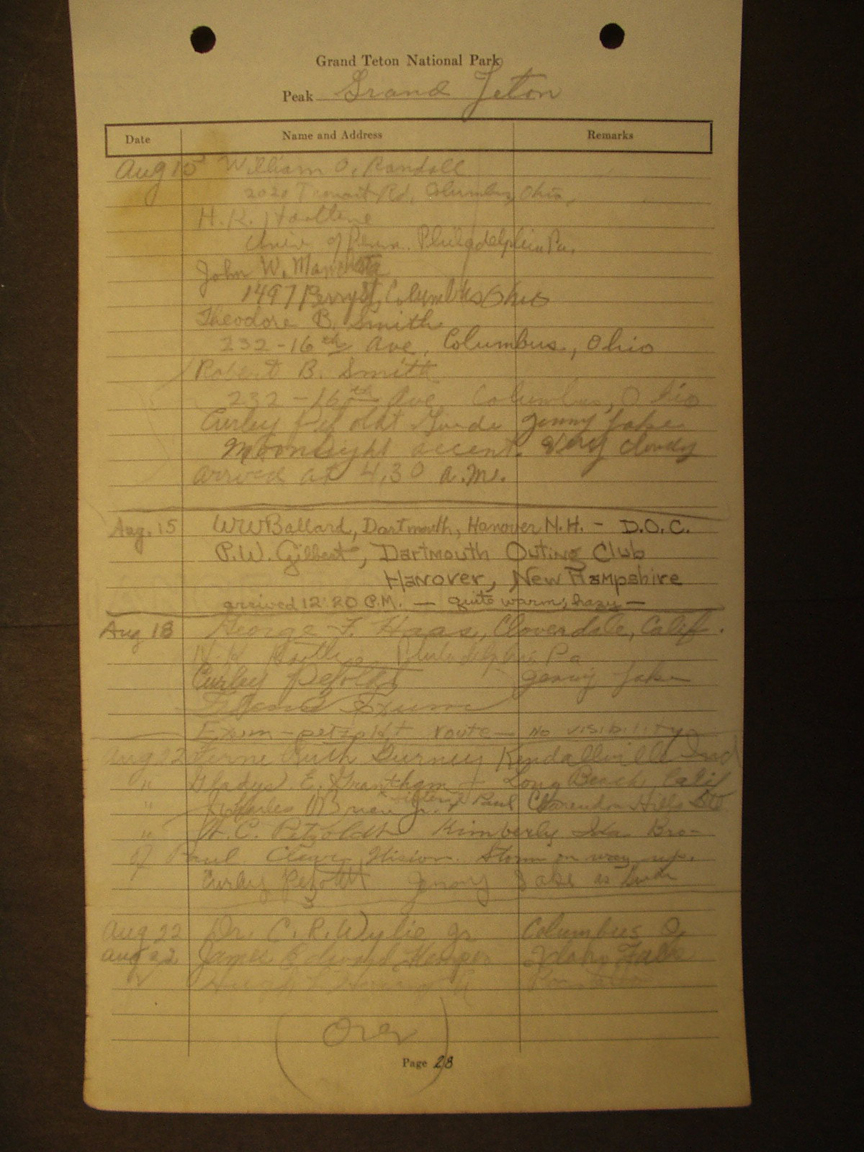 Grand Teton National Park
Peak Grand Teton
Date Name and Address Remarks
Aug 15 William O. Randall
Rd, Columbus, Ohio,
H.K.
Univ of Penn. Philadelphia Pa.
John W.
1497 Perry St, Columbus Ohio
Theodore B. Smith
232-16th Ave, Columbus, Ohio
Robert B. Smith
232-16th Ave Columbus, Ohio
Curley Petzoldt Guide Jenny Lake
Moonlight ascent. Very cloudy
arrived at 4,30 a.m.
Aug. 15 WW Ballard, Dartmouth, Hanover N.H. - D.O.C.
P.W. Gilbert, Dartmouth Outing Club
Hanover, New Hampshire
arrived 12:20 P.M. — quite warm, hazy —
Aug 18 George F. Haas, Cloverdale, Calif.
Philadelphia Pa
Curley Petzoldt Jenny Lake
Glenn Exum
Exum - Petzoldt route - No visibility
Aug 22 Verne Ruth Gurney Kendallville Ind
" Gladys E. Grantham Long Beach Calif
" Charles O'Brien Jr. Clarendon Hills
" W.C. Petzoldt Kimberly Ida Bro-
of Paul Clear Vision. Storm on way up.
Curley Petzoldt Jenny Lake
Aug 22 Dr. C.R. Wylie Jr Columbus O.
Aug 22 James Edward Harper Idaho Falls
(Over)
Page 28